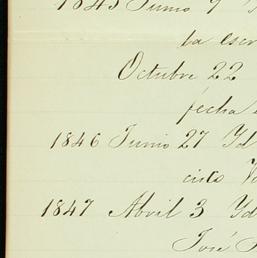 1845 Junio 9
la escr
Octubre 22
fecha
1846 Junio 27 Yd
cisco V
1847 Abril 3 Yd
José